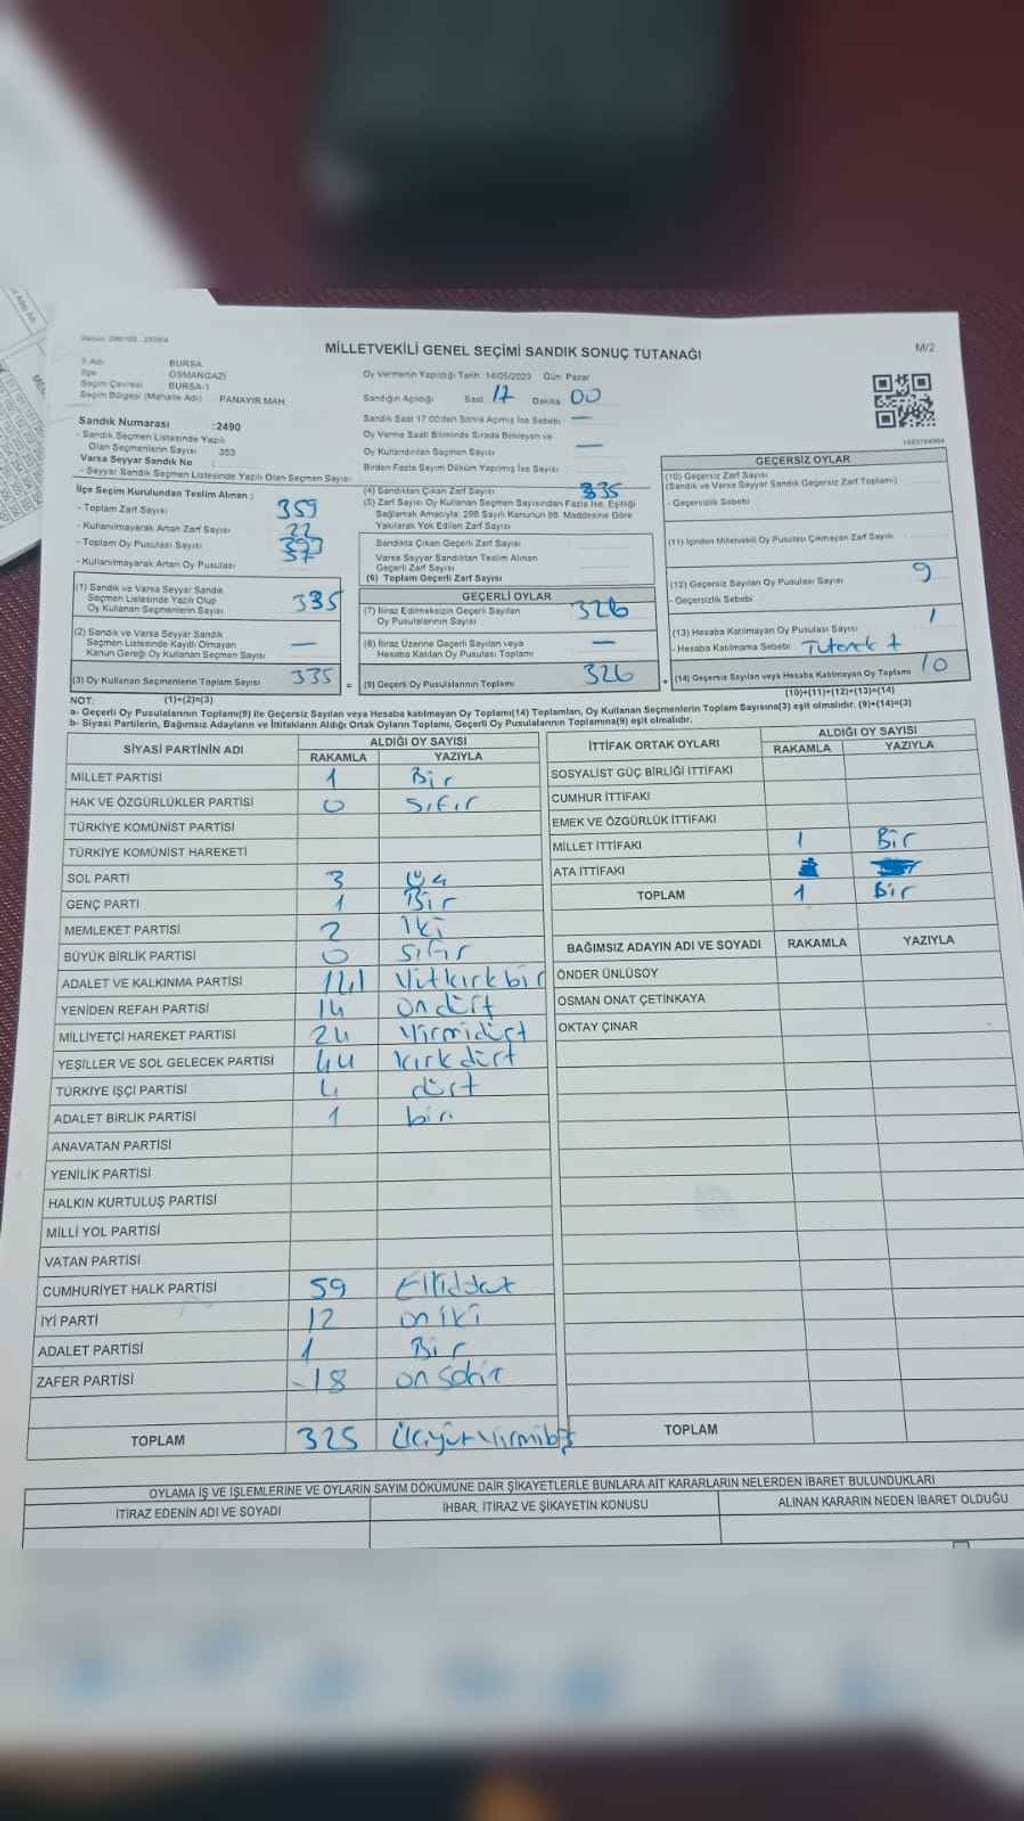 MİLLETVEKİLİ GENEL SEÇİMİ SANDIK SONUÇ TUTANAĞI
M/2
İlçe OSMANGAZİ
BURSA
Seçim Çevresi BURSA-1
Seçim Bölgesi (Mahalle Adı) PANAYIR MAH.
Oy Vermenin Yapıldığı Tarih: 14/05/2023 Gün: Pazar
Sandığın Açılışı Saat: 17 Dakika: 00
Sandık Saat 17.00'den Sonra Açılmış İse Sebebi: —
Oy Verme Saati Bitiminde Sırada Bekleyen ve
Oy Kullandırılan Seçmen Sayısı —
Birden Fazla Sayım Döküm Yapılmış İse Sayısı
Sandık Numarası :2490
- Sandık Seçmen Listesinde Yazılı
Olan Seçmenlerin Sayısı 353
Varsa Seyyar Sandık No
- Seyyar Sandık Seçmen Listesinde Yazılı Olan Seçmen Sayısı
İlçe Seçim Kurulundan Teslim Alınan :
- Toplam Zarf Sayısı 359
- Kullanılmayarak Artan Zarf Sayısı
- Toplam Oy Pusulası Sayısı
- Kullanılmayarak Artan Oy Pusulası
(1) Sandık ve Varsa Seyyar Sandık
Seçmen Listesinde Yazılı Olup
Oy Kullanan Seçmenlerin Sayısı 335
(2) Sandık ve Varsa Seyyar Sandık
Seçmen Listesinde Kayıtlı Olmayan
Kanun Gereği Oy Kullanan Seçmen Sayısı —
(3) Oy Kullanan Seçmenlerin Toplam Sayısı 335
(4) Sandıktan Çıkan Zarf Sayısı 335
(5) Zarf Sayısı Oy Kullanan Seçmen Sayısından Fazla İse, Eşitliği
Sağlamak Amacıyla; 298 Sayılı Kanunun 98. Maddesine Göre
Yakılarak Yok Edilen Zarf Sayısı
Sandıkta Çıkan Geçerli Zarf Sayısı
Varsa Seyyar Sandıktan Teslim Alınan
Geçerli Zarf Sayısı
(6) Toplam Geçerli Zarf Sayısı
GEÇERLİ OYLAR
(7) İtiraz Edilmeksizin Geçerli Sayılan
Oy Pusulalarının Sayısı 326
(8) İtiraz Üzerine Geçerli Sayılan veya
Hesaba Katılan Oy Pusulası Toplamı —
= (9) Geçerli Oy Pusulalarının Toplamı 326
GEÇERSİZ OYLAR
(10) Geçersiz Zarf Sayısı
(Sandık ve Varsa Seyyar Sandık Geçersiz Zarf Toplamı)
- Geçersizlik Sebebi
(11) İçinden Milletvekili Oy Pusulası Çıkmayan Zarf Sayısı
(12) Geçersiz Sayılan Oy Pusulası Sayısı 9
- Geçersizlik Sebebi
(13) Hesaba Katılmayan Oy Pusulası Sayısı 1
- Hesaba Katılmama Sebebi
+ (14) Geçersiz Sayılan veya Hesaba Katılmayan Oy Toplamı 10
NOT: (1)+(2)=(3)
(10)+(11)+(12)+(13)=(14)
a- Geçerli Oy Pusulalarının Toplamı(9) ile Geçersiz Sayılan veya Hesaba katılmayan Oy Toplamı(14) Toplamları, Oy Kullanan Seçmenlerin Toplam Sayısına(3) eşit olmalıdır. (9)+(14)=(3)
b- Siyasi Partilerin, Bağımsız Adayların ve İttifakların Aldığı Ortak Oyların Toplamı, Geçerli Oy Pusulalarının Toplamına(9) eşit olmalıdır.
SİYASİ PARTİNİN ADI ALDIĞI OY SAYISI
RAKAMLA YAZIYLA
MİLLET PARTİSİ 1 Bir
HAK VE ÖZGÜRLÜKLER PARTİSİ 0 Sıfır
TÜRKİYE KOMÜNİST PARTİSİ
TÜRKİYE KOMÜNİST HAREKETİ
SOL PARTİ 3
GENÇ PARTİ 1 Bir
MEMLEKET PARTİSİ 2 İki
BÜYÜK BİRLİK PARTİSİ 0 Sıfır
ADALET VE KALKINMA PARTİSİ 141
YENİDEN REFAH PARTİSİ 14 ondört
MİLLİYETÇİ HAREKET PARTİSİ 24 Yirmidört
YEŞİLLER VE SOL GELECEK PARTİSİ 44 kırkdört
TÜRKİYE İŞÇİ PARTİSİ 4 dört
ADALET BİRLİK PARTİSİ 1 bir
ANAVATAN PARTİSİ
YENİLİK PARTİSİ
HALKIN KURTULUŞ PARTİSİ
MİLLİ YOL PARTİSİ
VATAN PARTİSİ
CUMHURİYET HALK PARTİSİ 59
İYİ PARTİ 12 oniki
ADALET PARTİSİ 1 Bir
ZAFER PARTİSİ 18
TOPLAM 325
İTTİFAK ORTAK OYLARI ALDIĞI OY SAYISI
RAKAMLA YAZIYLA
SOSYALİST GÜÇ BİRLİĞİ İTTİFAKI
CUMHUR İTTİFAKI
EMEK VE ÖZGÜRLÜK İTTİFAKI
MİLLET İTTİFAKI 1 Bir
ATA İTTİFAKI
TOPLAM 1 Bir
BAĞIMSIZ ADAYIN ADI VE SOYADI RAKAMLA YAZIYLA
ÖNDER ÜNLÜSOY
OSMAN ONAT ÇETİNKAYA
OKTAY ÇINAR
TOPLAM
OYLAMA İŞ VE İŞLEMLERİNE VE OYLARIN SAYIM DÖKÜMÜNE DAİR ŞİKAYETLERLE BUNLARA AİT KARARLARIN NELERDEN İBARET BULUNDUKLARI
İTİRAZ EDENİN ADI VE SOYADI İHBAR, İTİRAZ VE ŞİKAYETİN KONUSU ALINAN KARARIN NEDEN İBARET OLDUĞU